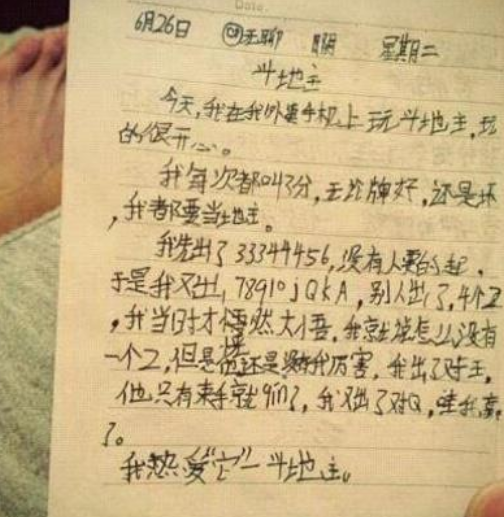 Date.
6月26日 无聊 阴 星期二
斗地主
今天,我在我外婆手机上玩斗地主,玩
的很开心。
我每次都叫3分,无论牌好,还是坏
,我都要当地主。
我先出了33344456,没有人要的起,
于是我又出,78910jQkA,别人出了,4个2
,我当时才恍然大悟,我就说怎么没有
一个2,但是他还是没我厉害,我出了对王,
他只有束手就qin了,我又出了对Q,哇我赢
了。
我热爱“它”—斗地主。